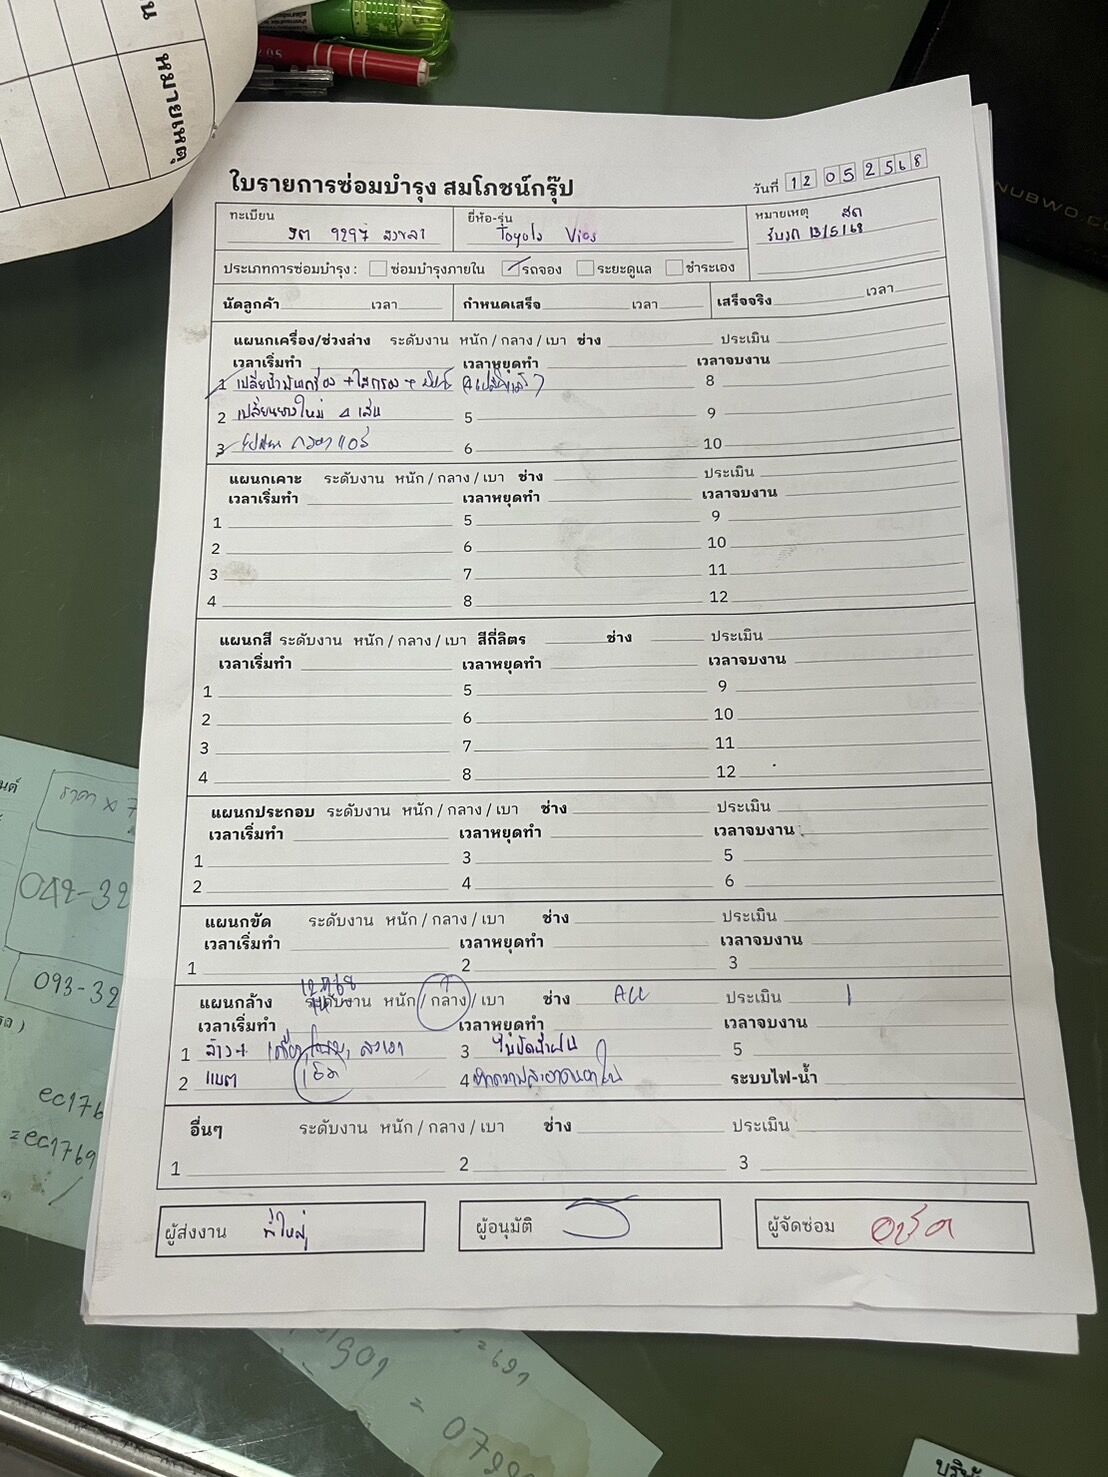 หมายเหตุ
ใบรายการซ่อมบำรุง สมโภชน์กรุ๊ป
วันที่ 12 05 2568
ทะเบียน 9297 สงขลา
ยี่ห้อ-รุ่น Toyota Vios
หมายเหตุ สด
รับรถ 13/5/68
ประเภทการซ่อมบำรุง : ซ่อมบำรุงภายใน รถจอง ระยะดูแล ชำระเอง
นัดลูกค้า เวลา กำหนดเสร็จ เวลา เสร็จจริง เวลา
แผนกเครื่อง/ช่วงล่าง ระดับงาน หนัก / กลาง / เบา ช่าง ประเมิน
เวลาเริ่มทำ เวลาหยุดทำ เวลาจบงาน
1 เปลี่ยนน้ำมันเครื่อง + ไส้กรอง + 4 8
2 เปลี่ยนยางใหม่ 4 เส้น 5 9
3 กรองแอร์ 6 10
แผนกเคาะ ระดับงาน หนัก / กลาง / เบา ช่าง ประเมิน
เวลาเริ่มทำ เวลาหยุดทำ เวลาจบงาน
1 5 9
2 6 10
3 7 11
4 8 12
แผนกสี ระดับงาน หนัก / กลาง / เบา สีกี่ลิตร ช่าง ประเมิน
เวลาเริ่มทำ เวลาหยุดทำ เวลาจบงาน
1 5 9
2 6 10
3 7 11
4 8 12
แผนกประกอบ ระดับงาน หนัก / กลาง / เบา ช่าง ประเมิน
เวลาเริ่มทำ เวลาหยุดทำ เวลาจบงาน
1 3 5
2 4 6
แผนกขัด ระดับงาน หนัก / กลาง / เบา ช่าง ประเมิน
เวลาเริ่มทำ เวลาหยุดทำ เวลาจบงาน
1 2 3
แผนกล้าง ระดับงาน หนัก / กลาง / เบา ช่าง ALL ประเมิน 1
เวลาเริ่มทำ เวลาหยุดทำ เวลาจบงาน
1 ล้าง + 3 ใบปัดน้ำฝน 5
2 แบต เช็ค 4 ทำความสะอาด ระบบไฟ-น้ำ
อื่นๆ ระดับงาน หนัก / กลาง / เบา ช่าง ประเมิน
1 2 3
ผู้ส่งงาน พี่ใหญ่
ผู้อนุมัติ
ผู้จัดซ่อม
ราคา x 7
042-32
093-32
ec176
=ec1769
=697